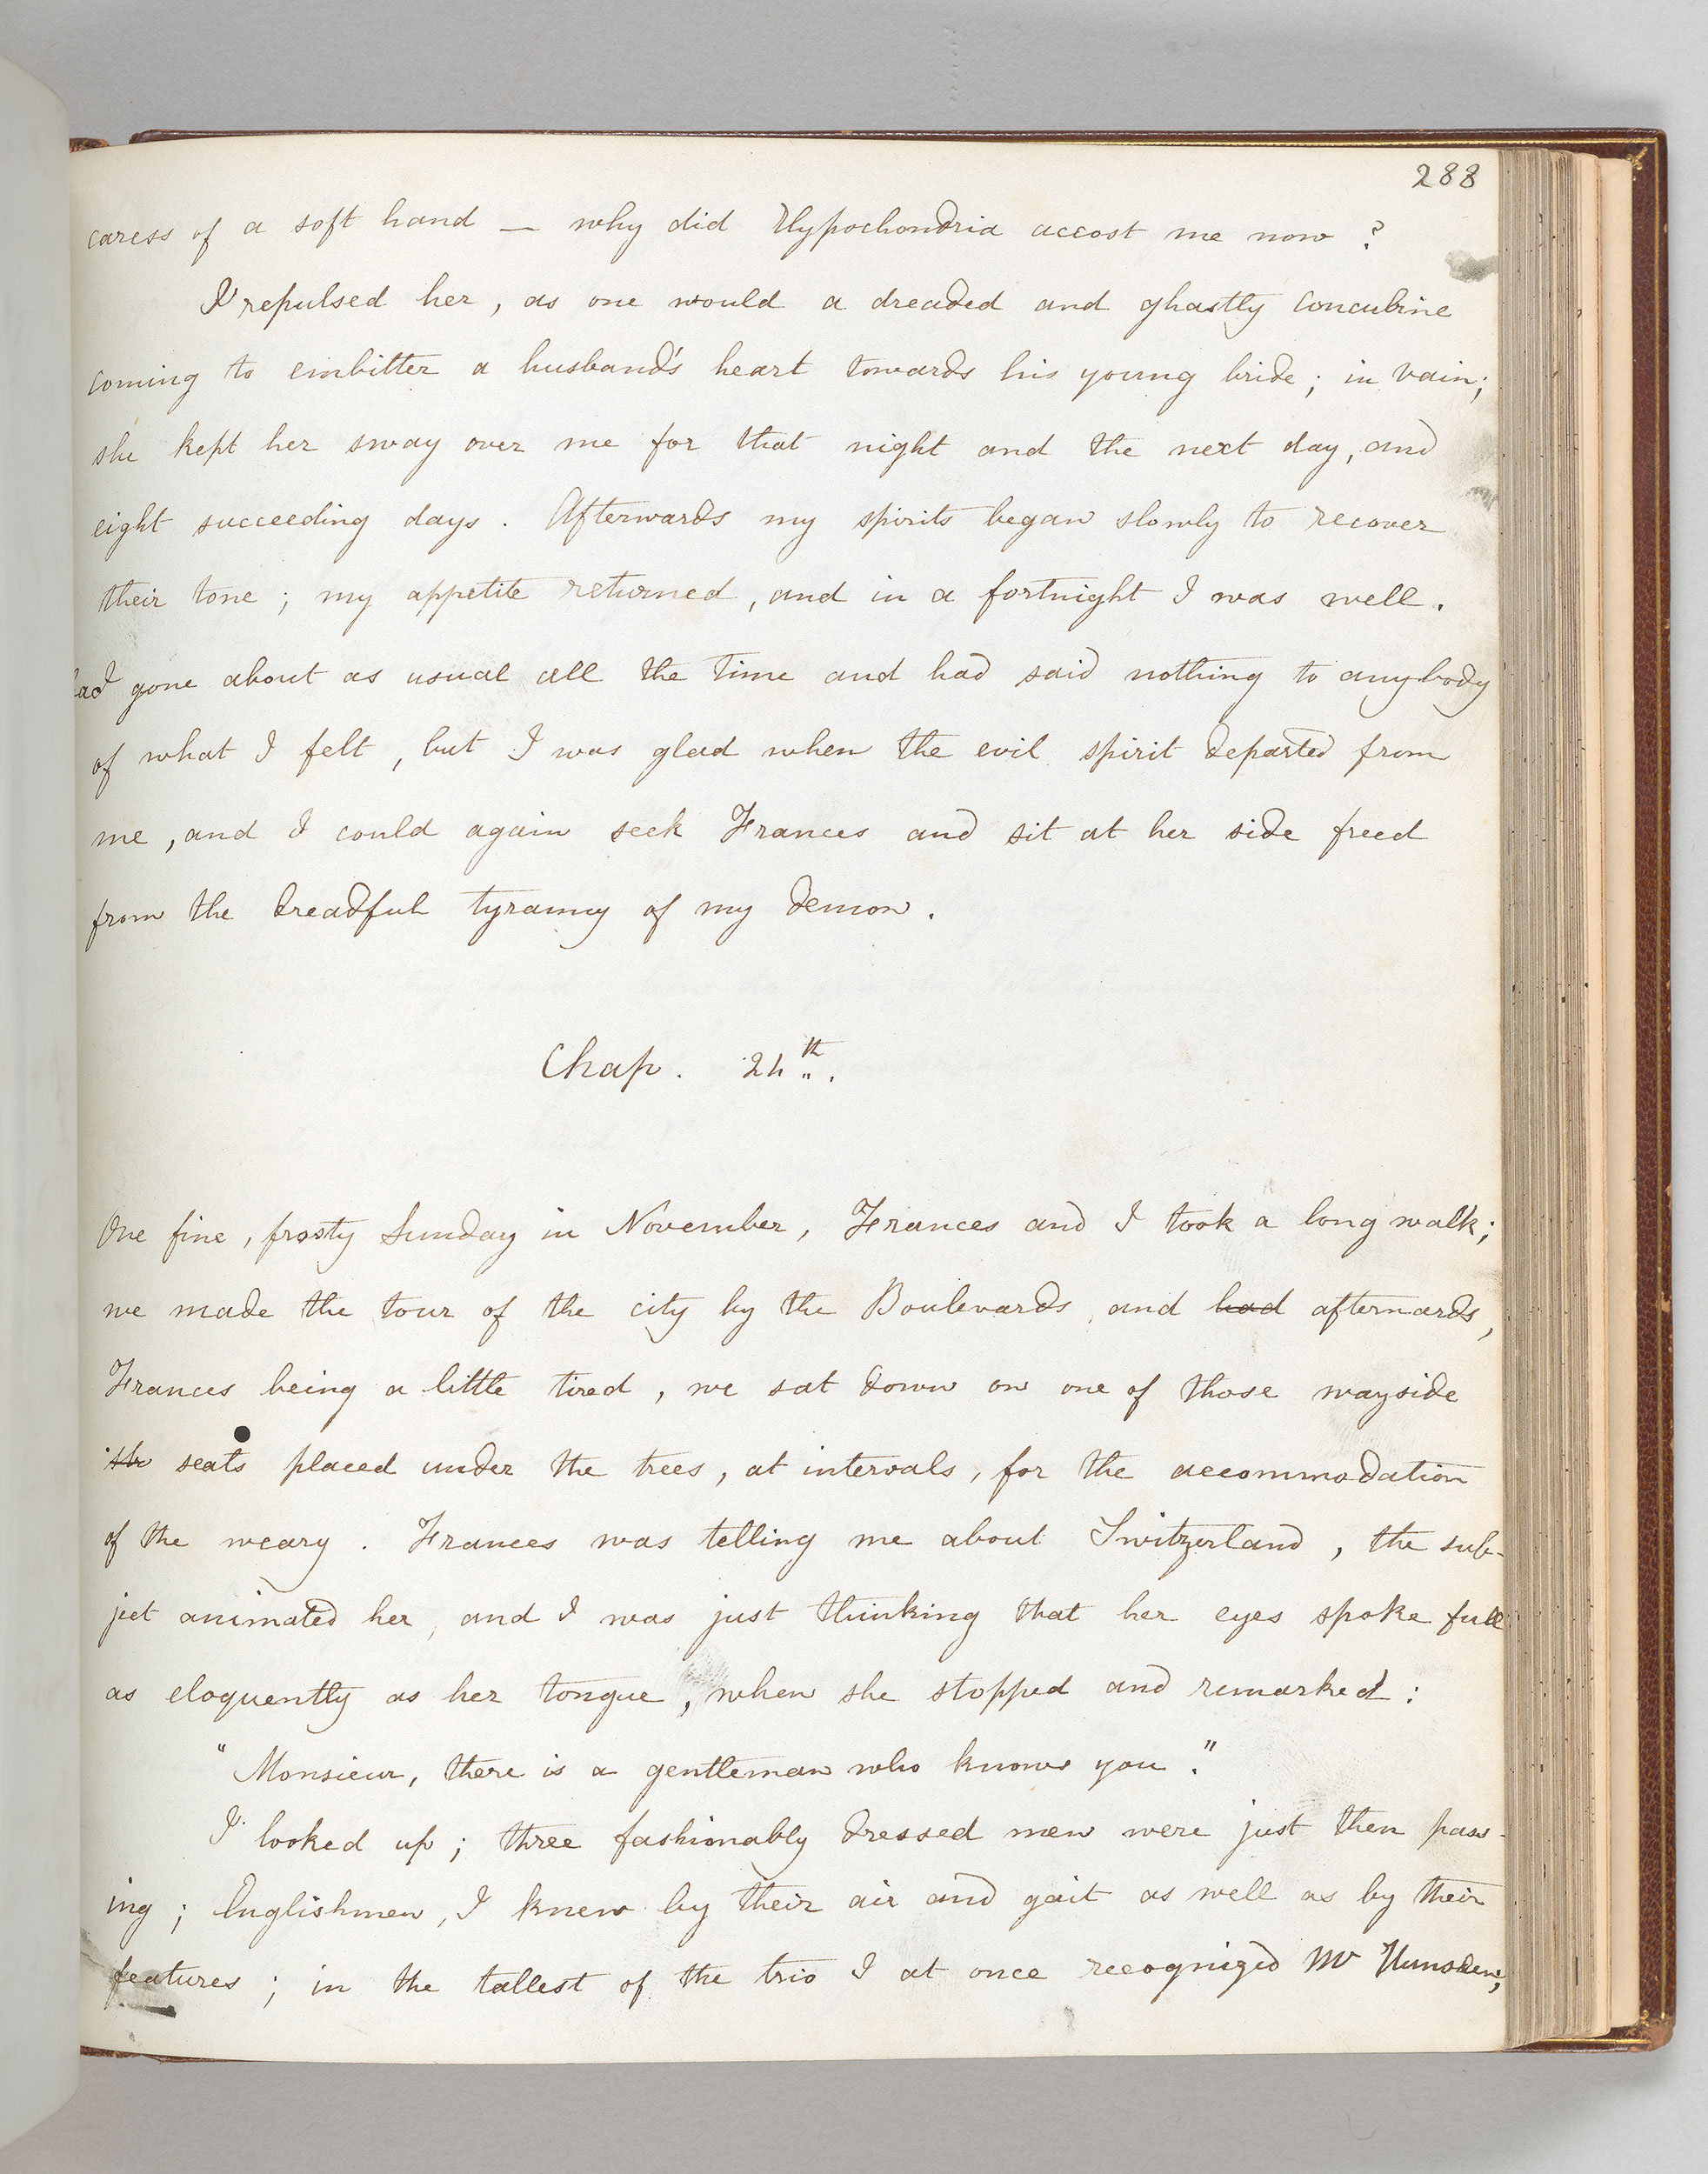 288
caress of a soft hand — why did Hypochondria accost me now ?
I repulsed her, as one would a dreaded and ghastly concubine
coming to embitter a husband's heart towards his young bride; in vain;
she kept her sway over me for that night and the next day, and
eight succeeding days. Afterwards my spirits began slowly to recover
their tone; my appetite returned, and in a fortnight I was well.
had gone about as usual all the time and had said nothing to anybody
of what I felt, but I was glad when the evil spirit departed from
me, and I could again seek Frances and sit at her side freed
from the dreadful tyranny of my demon.
Chap. 24th.
One fine, frosty Sunday in November, Frances and I took a long walk;
we made the tour of the city by the Boulevards, and had afterwards,
Frances being a little tired, we sat down on one of those wayside
sh seats placed under the trees, at intervals, for the accommodation
of the weary. Frances was telling me about Switzerland, the sub-
ject animated her, and I was just thinking that her eyes spoke full
as eloquently as her tongue, when she stopped and remarked:
"Monsieur, there is a gentleman who knows you."
I looked up; three fashionably dressed men were just then pass-
ing; Englishmen, I knew by their air and gait as well as by their
features; in the tallest of the trio I at once recognized Mr Hunsden;